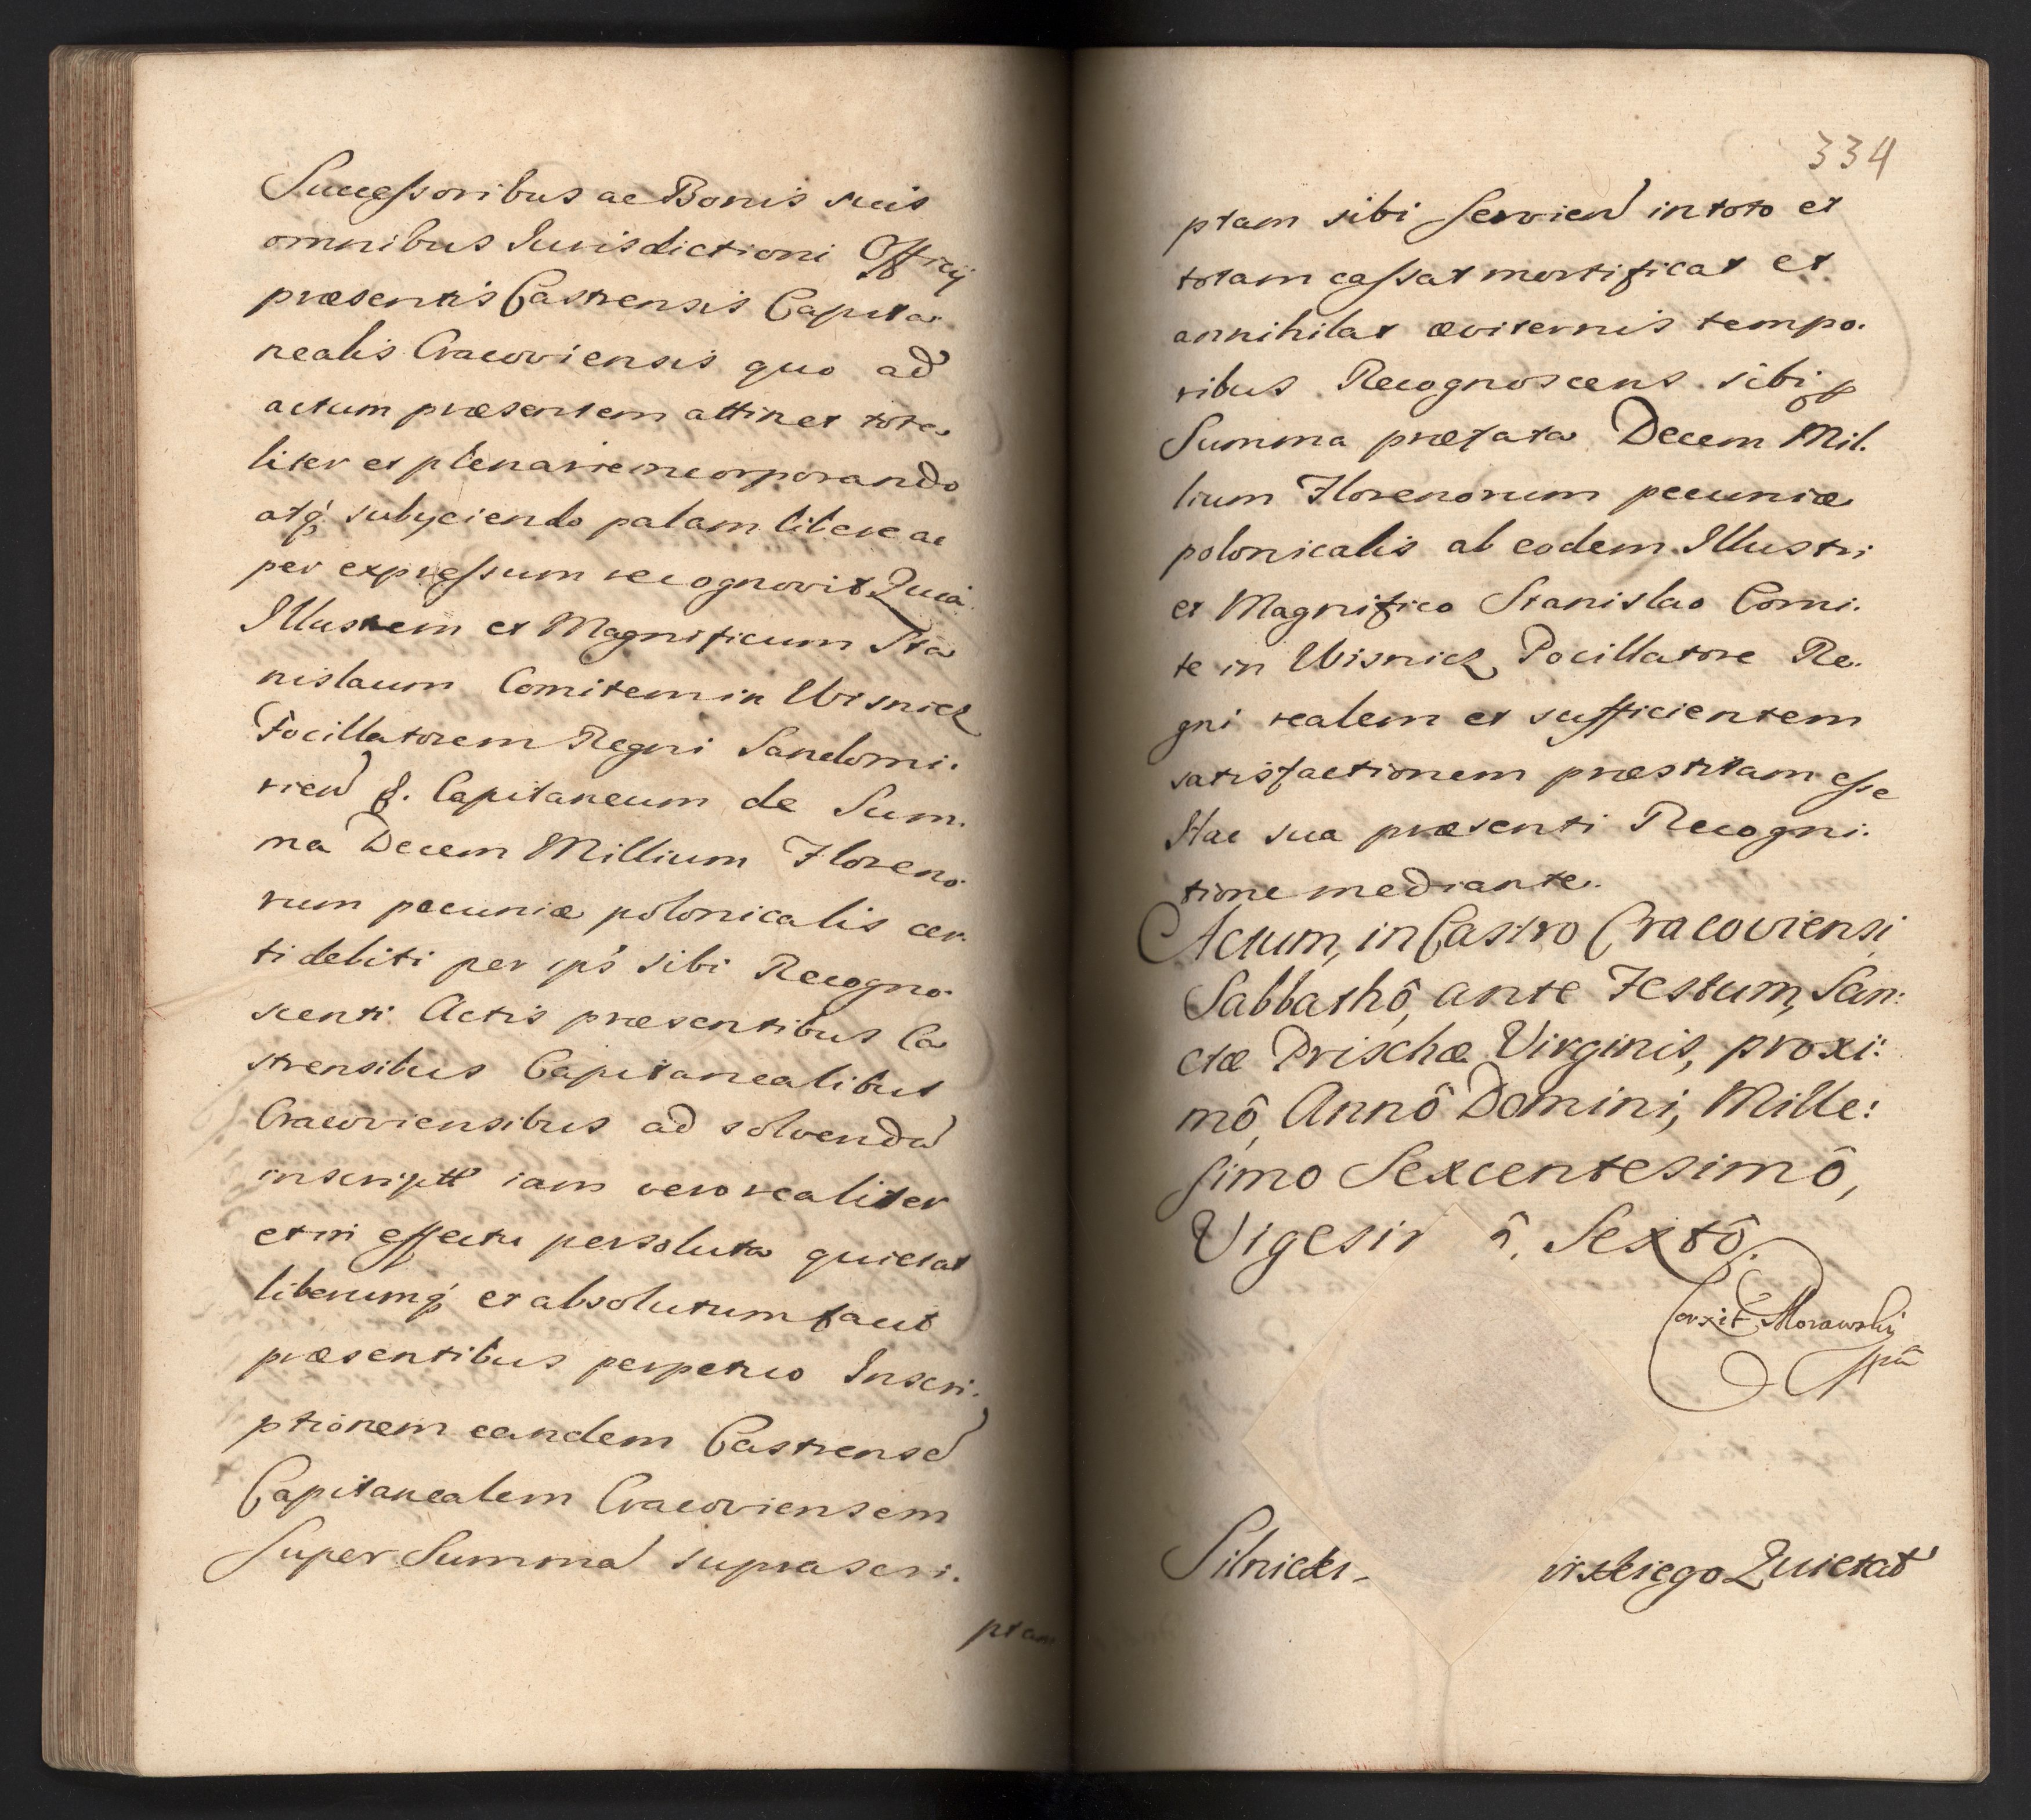 Successoribus ac Bonis suis
omnibus Iurisdictioni Officij
præsentis Castrensis Capita
nealis Cracoviensis quo ad
actum præsentem attinet tota
liter et plenarie incorporando
atq́ subijciendo palam libere ac
per expressum recognovit Quia
Illustrem et Magnificum Sta
nislaum Comitem in Wisnicz
Pocillatorem Regni Sandomi.
rien Capitaneum de Sum.
ma Decem Millium Floreno
rum pecuniæ polonicalis cer
ti debiti per ips sibi Recogno
scenti Actis præsentibus Ca
strensibus Capitanealibus
Cracoviensibus ad solvenda
inscriptt iam vero realiter
et in effectu persoluta quietat
liberumq́ et absolutum facit
præsentibus perpetuo Inscri.
ptionem eandem Castrense
Capitanealem Cracoviensem
super Summa suprascri.
ptam
334
ptam sibi servien in toto et
totam cassat mortificat et
annihilat æviternis tempo.
ribus Recognoscens sibi p
Summa præfata Decem Mil.
lium Florenorum pecuniæ
polonicalis ab eodem Illustri
et Magnifico Stanislao Comi.
te in Wisnicz Pocillatore Re.
gni realem et sufficientem
satisfactionem præstitam esse
Hac sua præsenti Recogni.
tione mediante.
Actum, in Castro Cracoviensi
Sabbathô, ante Festum, San:
ctæ Prischæ Virginis, proxi:
mô, Annô Domini, Mille:
simo Sexcentesimô,
Vigesi ô, Sextô.
Corxit Morawsky
Silnicki - iskiego Quietat